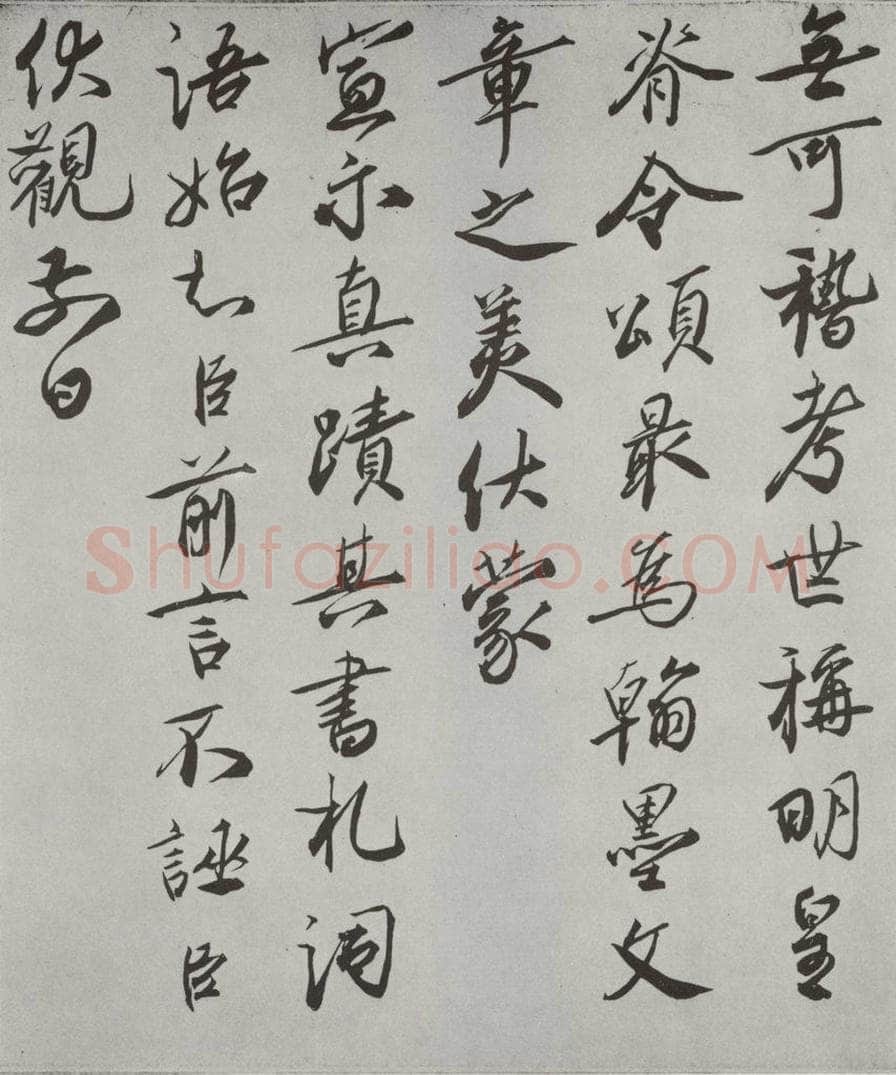 無可稽考世稱明皇
脊令頌最為翰墨文
章之美伏蒙
宣示真蹟其書札詞
語始知臣前言不誣臣
伏觀日
Shufaziliao.COM